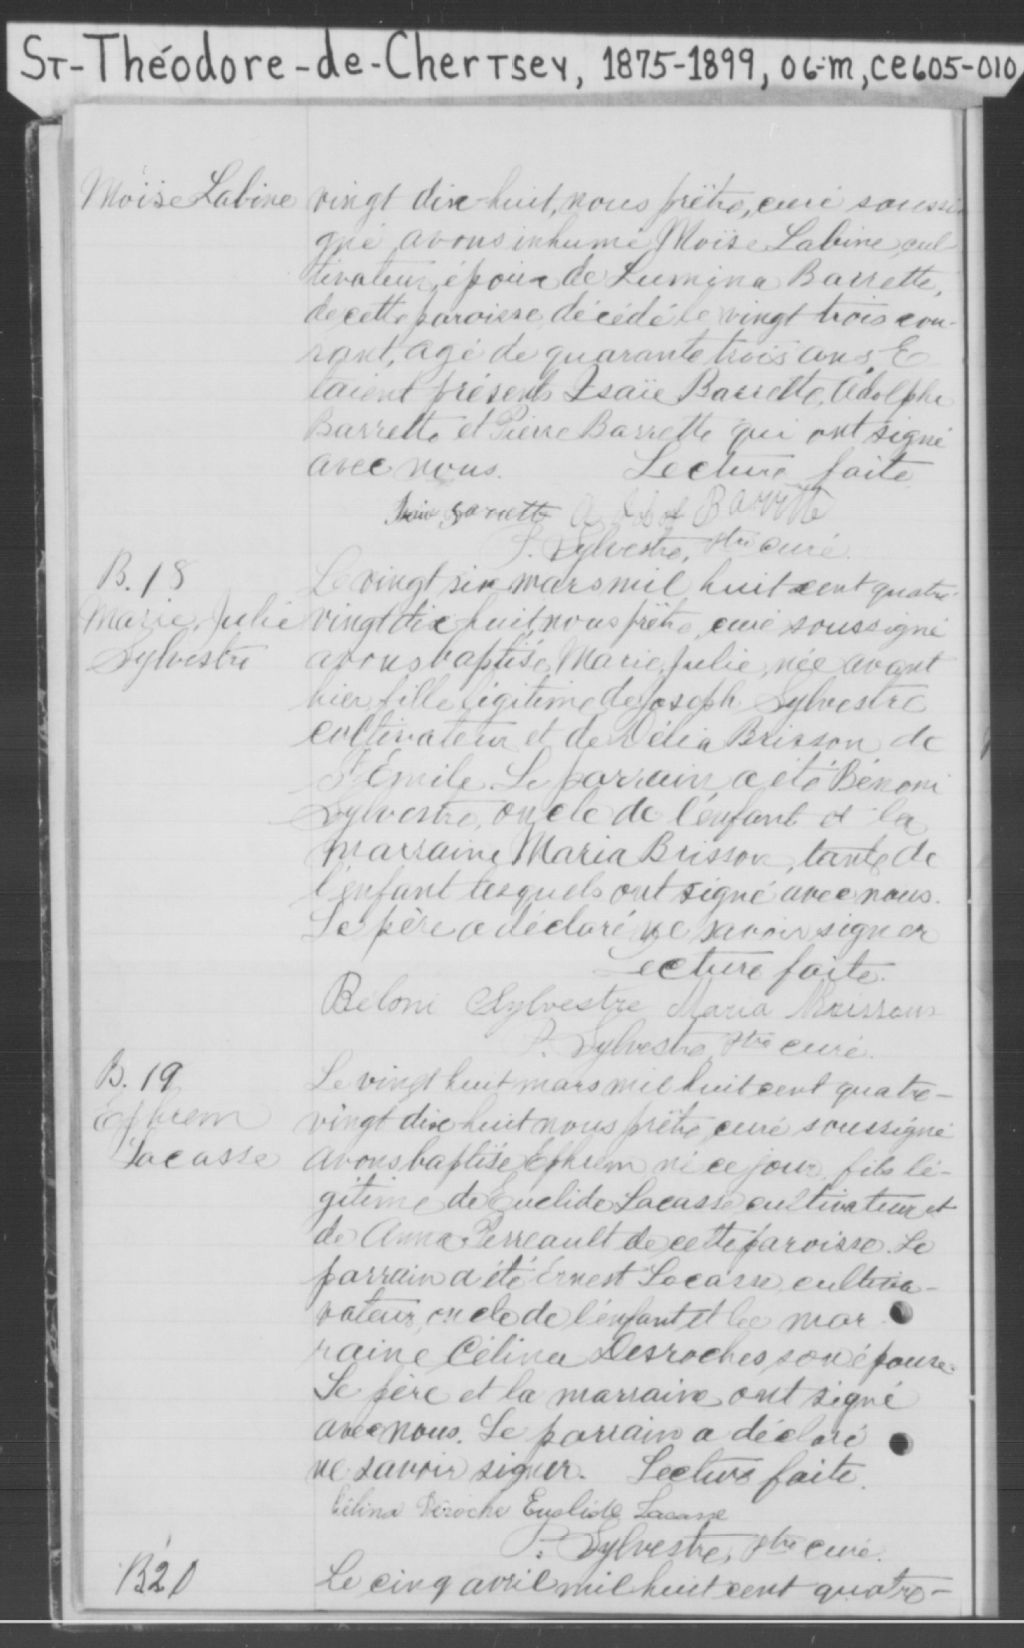 ST-Théodore-de-Chertsey, 1875-1899, 06-m, CE605-010
Moïse Labine
vingt dix-huit, nous prêtre, curé soussi
gné avons inhumé Moïse Labine, cul-
tivateur, époux de Lumina Barrette,
de cette paroisse, décédé le vingt trois cou-
rant, agé de quarante trois ans. E
taient présents Isaïe Barrette, Adolphe
Barrette et Pierre Barrette qui ont signé
avec nous. Lecture faite
Barrette
P. Sylvestre, Ptre curé.
B. 18
Marie Julie
Sylvestre
Le vingt six mars mil huit cent quatre-
vingt dix huit nous prêtre, curé soussigné
avons baptisé, Marie, Julie, née avant
hier, fille légitime de Joseph Sylvestre
cultivateur et de Délia Brisson de
St Emile. Le parrain a été Bénoni
Sylvestre, oncle de l'enfant et la
marraine Maria Brisson, tante de
l'enfant lesquels ont signé avec nous.
Le père a déclaré ne savoir signer
Lecture faite.
Béloni Sylvestre Maria Brisson
P. Sylvestre Ptre curé.
B. 19
Ephrem
Lacasse
Le vingt huit mars mil huit cent quatre-
vingt dix huit nous prêtre, curé soussigné
avons baptisé, Ephrem né ce jour, fils lé-
gitime de Euclide Lacasse cultivateur et
de Anna Perreault de cette paroisse. Le
parrain a été Ernest Lacasse, cultiva-
vateur, oncle de l'enfant et la mar
raine Célina Desroches, son épouse.
Le père et la marraine ont signé
avec nous. Le parrain a déclaré
ne savoir signer. Lecture faite.
Célina Déroche Euclide Lacasse
P. Sylvestre, Ptre curé.
B20
Le cinq avril mil huit cent quatre-